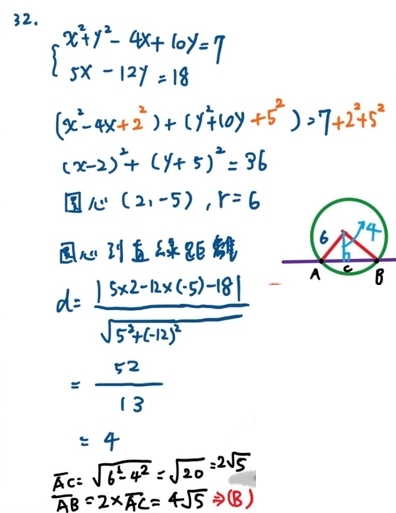 32.
{ x²+y²-4x+10y=7
5x-12y=18
(x²-4x+2²)+(y²+10y+5²)=7+2²+5²
(x-2)²+(y+5)²=36
圓心(2,-5),r=6
圓心到直線距離
d=|5×2-12×(-5)-18|
√5²+(-12)²
=52
13
=4
6 4
A C B
AC=√6²-4²=√20=2√5
AB=2×AC=4√5⇒(B)